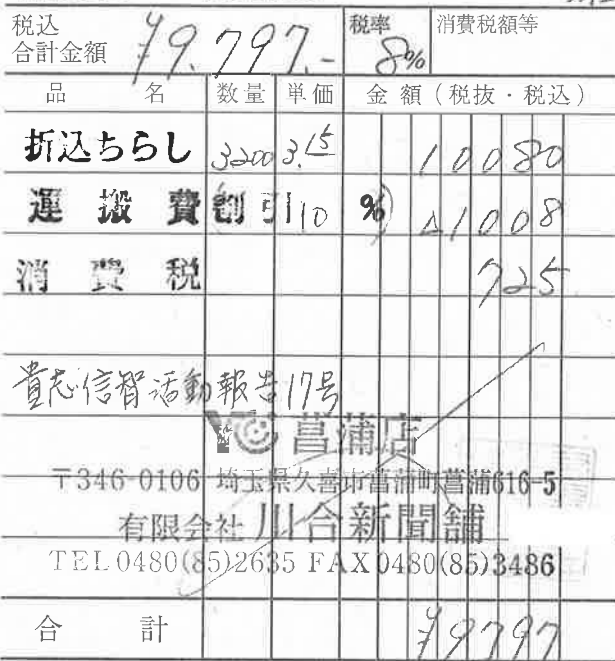 税込合計金額 ¥9.797.- 税率 8% 消費税額等
品名 数量 単価 金額(税抜・税込)
折込ちらし 3200 3.15 10080
運搬費割引 10 % △1008
消費税 725
貴志信智活動報告17号
YC 菖蒲店
〒346-0106 埼玉県久喜市菖蒲町菖蒲616-5
有限会社 川合新聞舗
TEL 0480(85)2635 FAX 0480(85)3486
合計 ¥9797